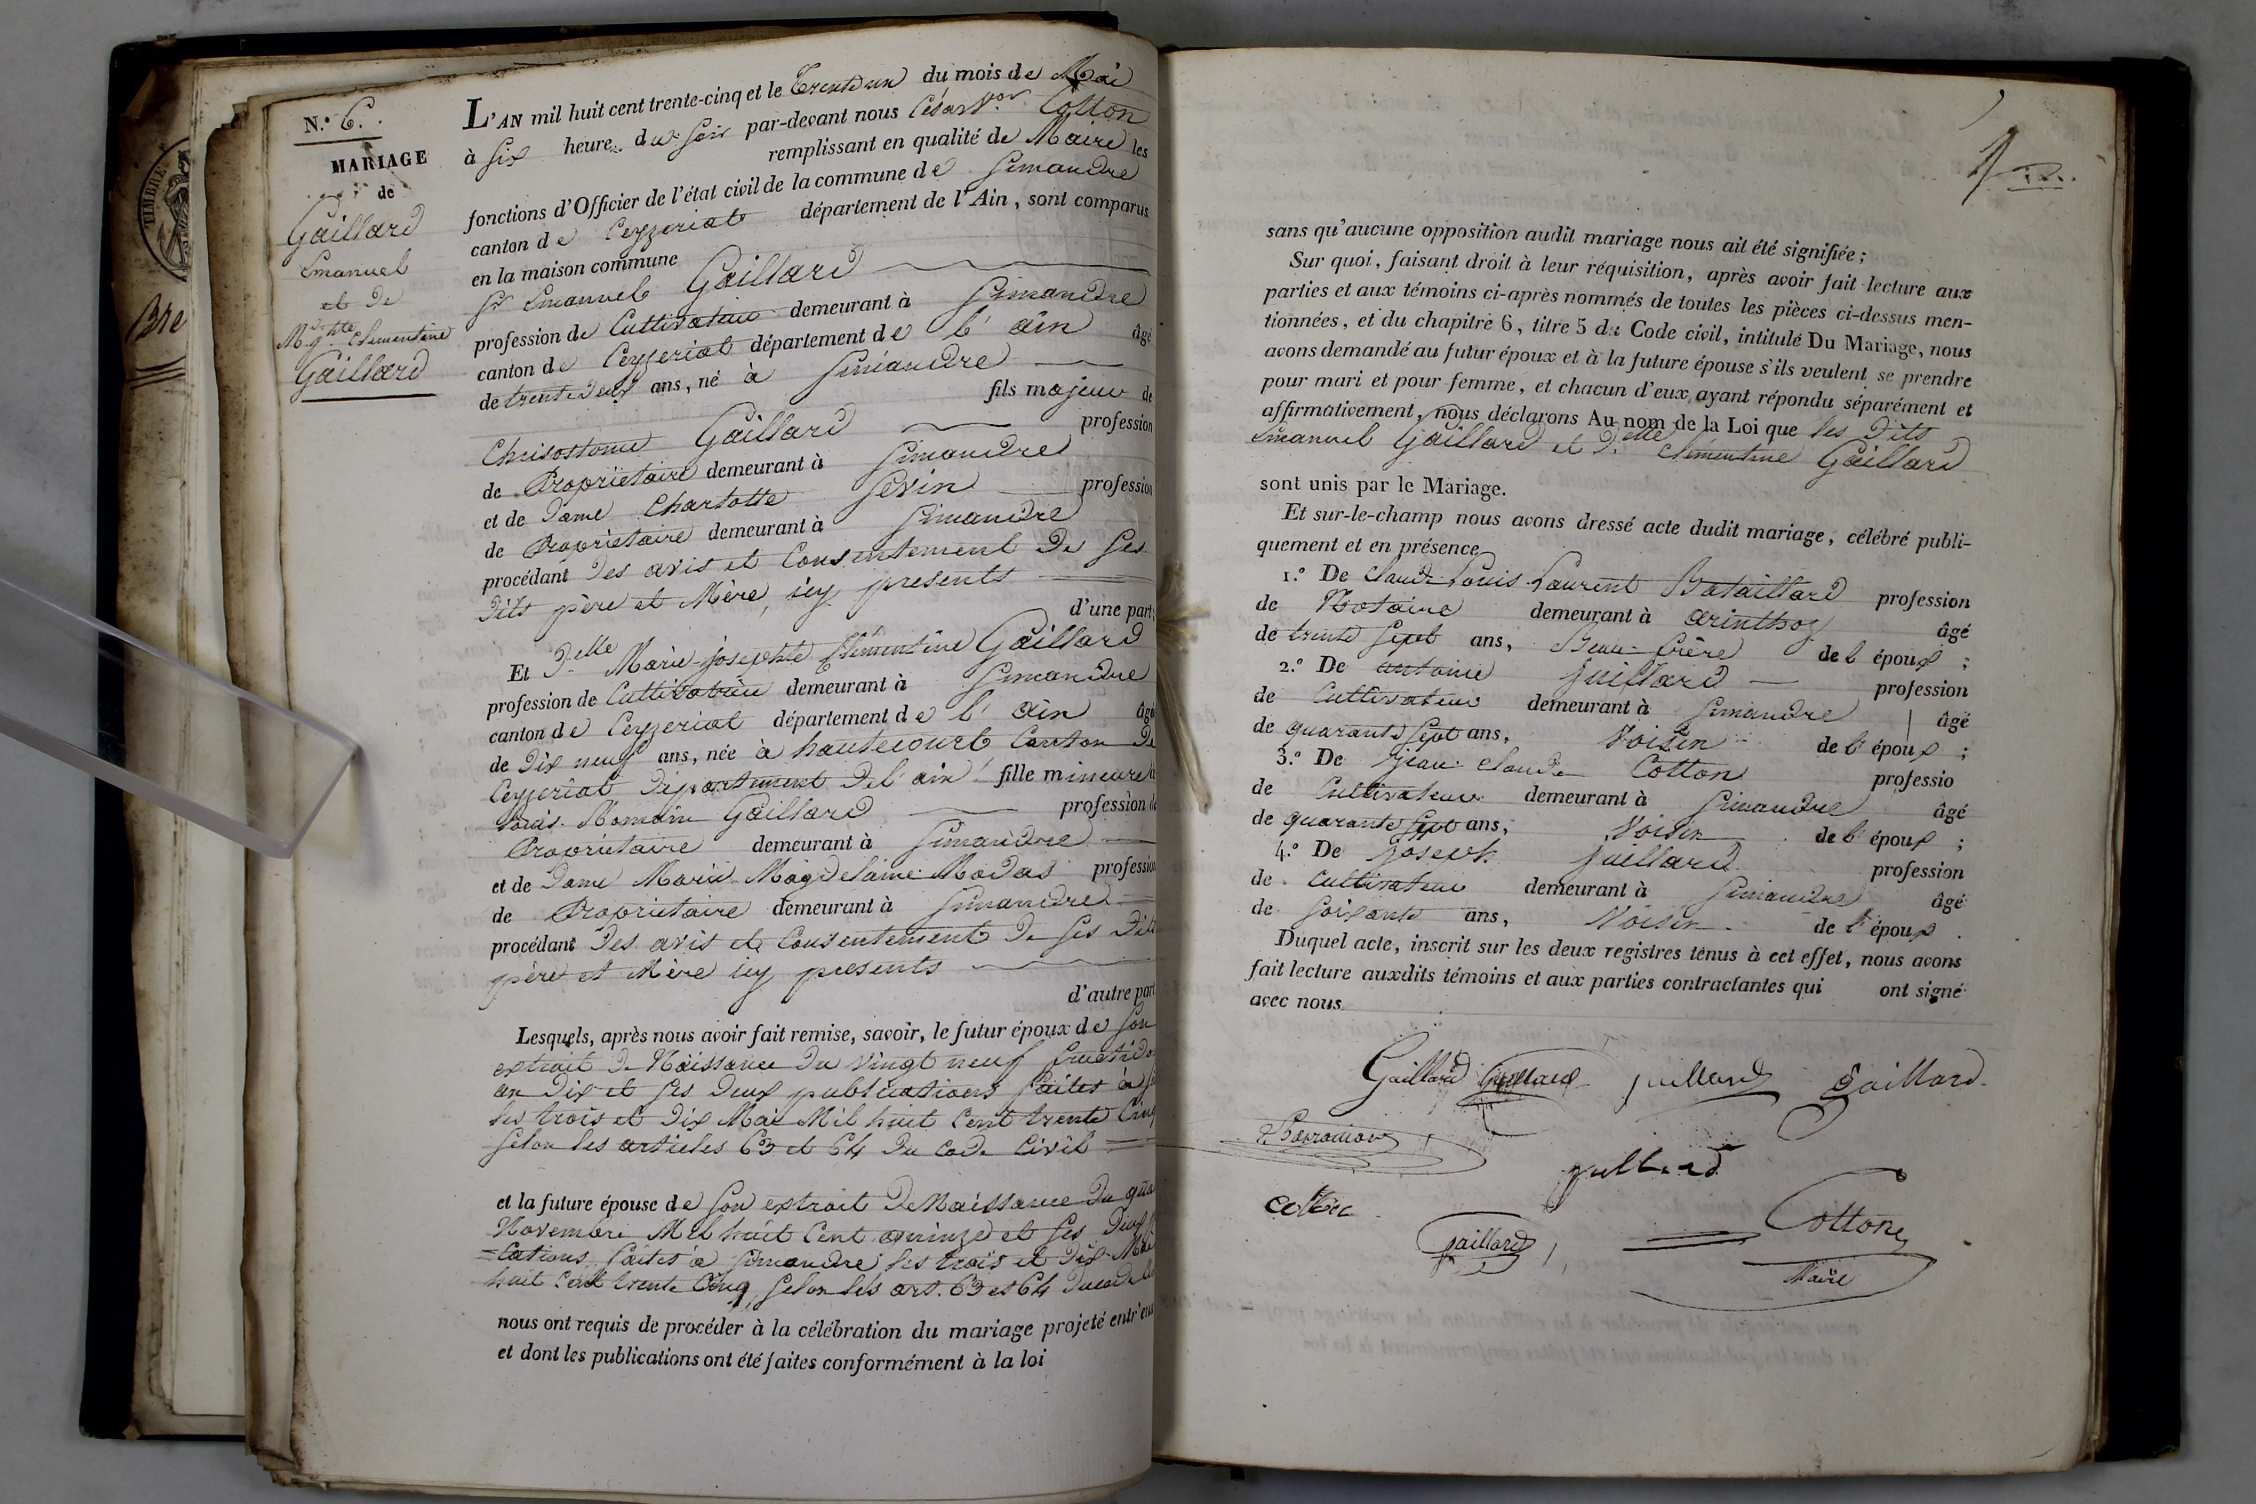 TIMBRE
Bre
N.º 6.
MARIAGE
de
Gaillard
Emanuel
et De
M. Jphte Clementine
Gaillard
L'AN mil huit cent trente-cinq et le Trente un du mois de Mai
à six heure du soir par-devant nous César Cotton
remplissant en qualité de Maire les
fonctions d'Officier de l'état civil de la commune de Simandre
canton de Ceyzeriat département de l'Ain, sont comparus
en la maison commune
Sr Emanuel Gaillard
profession de Cultivateur demeurant à Simandre
canton de Ceyzeriat département de l'ain âgé
de trente deux ans, né à Simandre
fils majeur de
Chrisostome Gaillard profession
de Propriétaire demeurant à Simandre
et de Dame Charlotte Sevin profession
de Propriétaire demeurant à Simandre
procédant Des avis et Consentement De Ses
Dits père et Mère, icy presents
d'une part;
Et Delle Marie josephte Clémentine Gaillard
profession de Cultivatrice demeurant à Simandre
canton de Ceyzeriat département de l'ain âgé
de Dix neuf ans, née à hautecourt Canton De
Ceyzeriat Departement De l'ain fille mineure de
Louis Romain Gaillard profession de
Propriétaire demeurant à Simandre
et de Dame Marie Magdelaine Modas profession
de Propriétaire demeurant à Simandre
procédant Des avis et Consentement De Ses Dits
père et Mère icy presents
d'autre part
Lesquels, après nous avoir fait remise, savoir, le futur époux de Son
extrait De Naissance Du vingt neuf fructidor
an Dix et Ses Deux publications faites à
les trois et Dix Mai Mil huit Cent trente Cinq
Selon les articles 63 et 64 Du Code Civil
et la future épouse de Son extrait De Naissance Du
Novembre Mil huit Cent quinze et Ses Deux
=Cations faites à Simandre les trois et Dix Mai
huit Cent trente Cinq, Selon les art. 63 et 64 Du code
nous ont requis de procéder à la célébration du mariage projeté entr'eux
et dont les publications ont été faites conformément à la loi
sans qu'aucune opposition audit mariage nous ait été signifiée;
Sur quoi, faisant droit à leur réquisition, après avoir fait lecture aux
parties et aux témoins ci-après nommés de toutes les pièces ci-dessus men-
tionnées, et du chapitre 6, titre 5 du Code civil, intitulé Du Mariage, nous
avons demandé au futur époux et à la future épouse s'ils veulent se prendre
pour mari et pour femme, et chacun d'eux ayant répondu séparément et
affirmativement, nous déclarons Au nom de la Loi que les Dits
Emanuel Gaillard et Delle Clémentine Gaillard
sont unis par le Mariage.
Et sur-le-champ nous avons dressé acte dudit mariage, célébré publi-
quement et en présence
1.º De Claude Louis Laurent Bataillard profession
de Notaire demeurant à arinthoz âgé
de trente Sept ans, Beau-frère de l'époux;
2.º De antoine juillard profession
de Cultivateur demeurant à Simandre âgé
de quarante Sept ans, Voisin de l'époux;
3.º De jean Claude Cotton professio
de Cultivateur demeurant à Simandre âgé
de quarante Sept ans, Voisin de l'époux;
4.º De joseph juillard profession
de Cultivateur demeurant à Simandre âgé
de Soixante ans, Voisin de l'époux.
Duquel acte, inscrit sur les deux registres tenus à cet effet, nous avons
fait lecture auxdits témoins et aux parties contractantes qui ont signé
avec nous.
Gaillard Gaillard juillard Gaillard
juillard
Cotton
gaillard
Maire